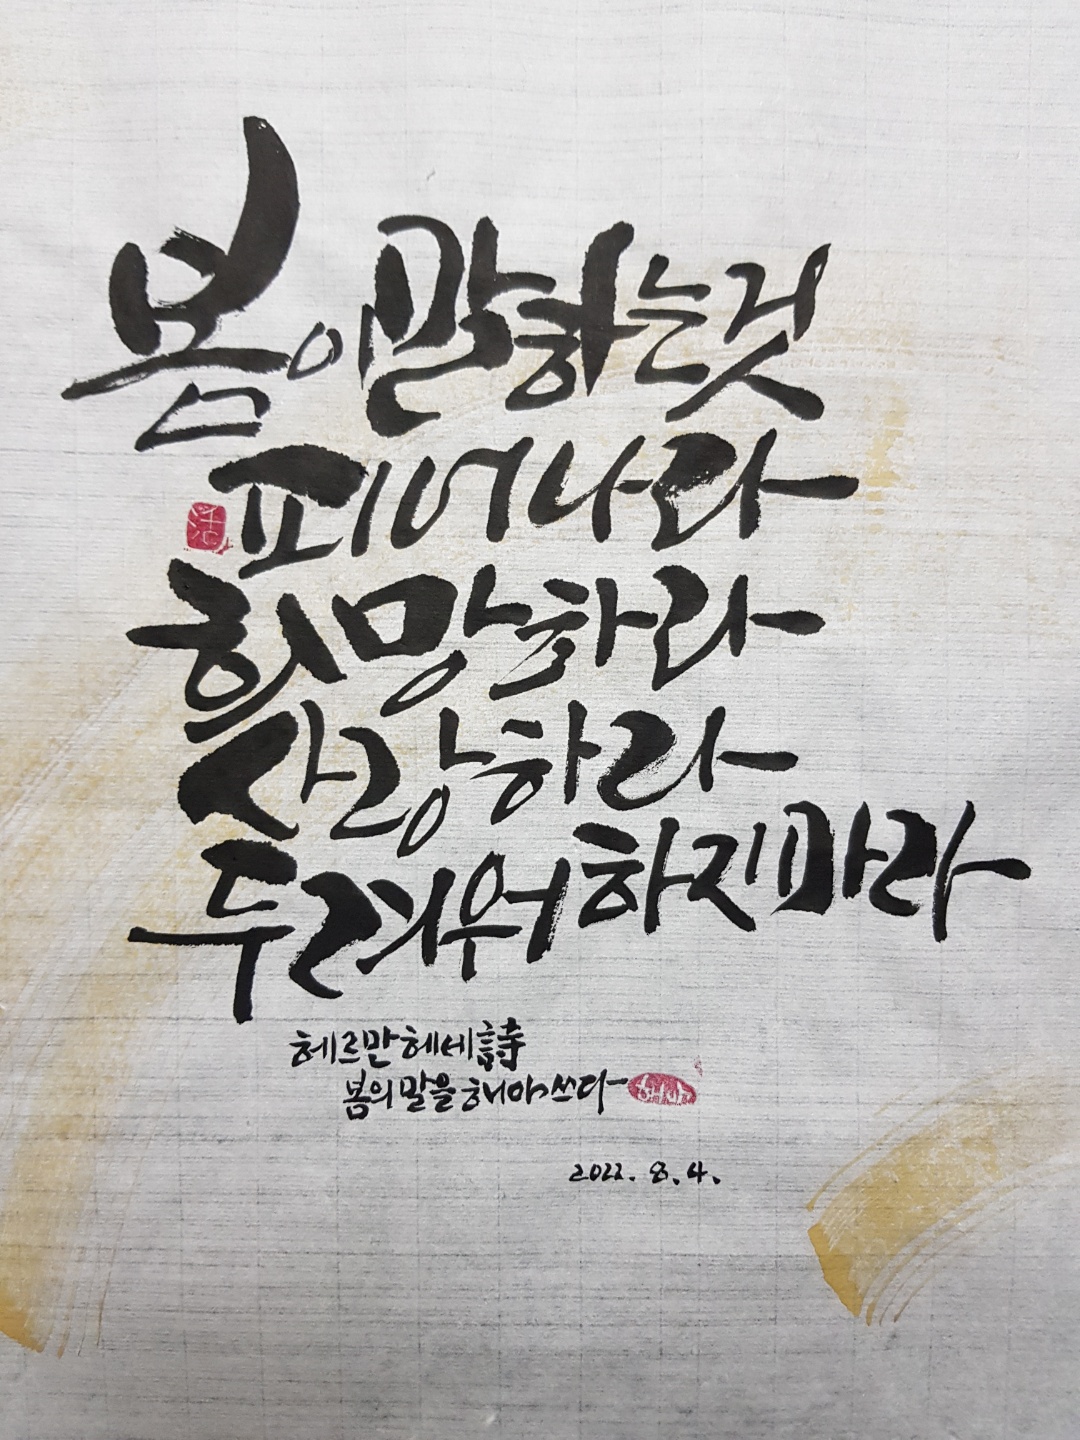 봄이 말하는 것
피어나라
희망하라
사랑하라
두려워하지 마라
헤르만 헤세 詩
봄의 말을 해야 쓰다
해야
2022. 8. 4.